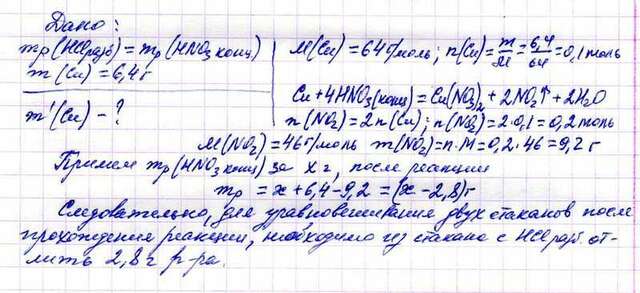 Дано:
mр(HCl разб) = mр(HNO₃ конц)
m(Cu) = 6,4 г
m'(Cu) - ?
M(Cu) = 64 г/моль; n(Cu) = m/M = 6,4/64 = 0,1 моль
Cu + 4HNO₃(конц) = Cu(NO₃)₂ + 2NO₂↑ + 2H₂O
n(NO₂) = 2n(Cu); n(NO₂) = 2·0,1 = 0,2 моль
M(NO₂) = 46 г/моль m(NO₂) = n·M = 0,2·46 = 9,2 г
Примем mр(HNO₃ конц) за x г, после реакции
mр = x + 6,4 - 9,2 = (x - 2,8) г
Следовательно, для уравновешивания двух стаканов после
прохождения реакции, необходимо из стакана с HCl разб. от-
лить 2,8 г р-ра.